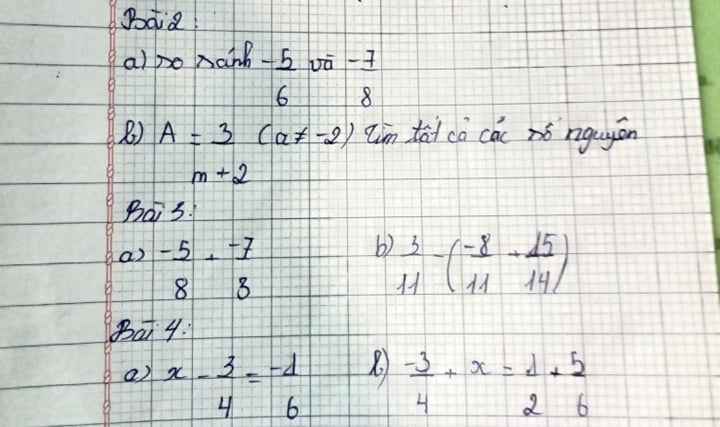 Bài 2:
a) so sánh -5/6 và -7/8
b) A = 3/(m+2) (a ≠ -2) Tìm tất cả các số nguyên
Bài 3:
a) -5/8 + -7/3 b) 3/11 - (-8/11 + 15/14)
Bài 4:
a) x - 3/4 = -1/6 b) -3/4 + x = 1/2 + 5/6